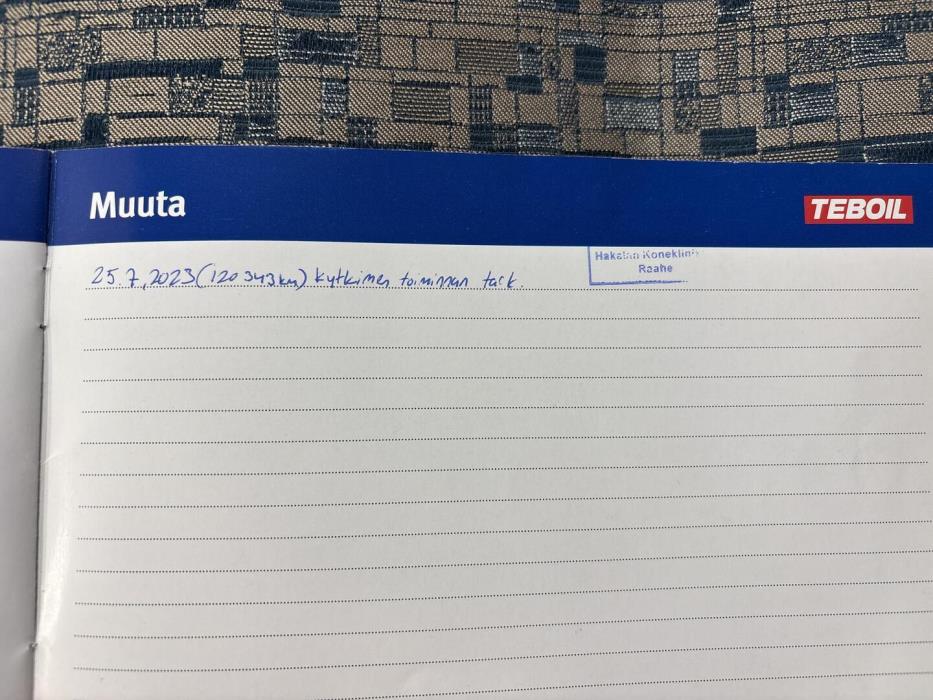 Muuta
TEBOIL
25.7.2023 (120 343 km) kytkimen toiminnan tark.
Hakalan Koneklin
Raahe